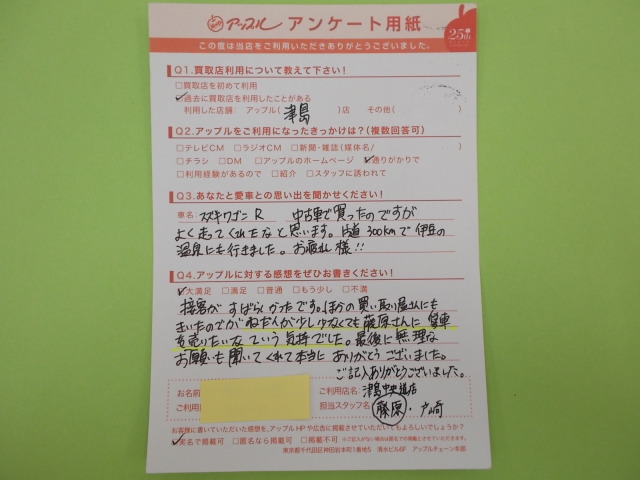 アップル アンケート用紙
25th
この度は当店をご利用いただきありがとうございました。
Q1.買取店利用について教えて下さい！
□買取店を初めて利用
☑過去に買取店を利用したことがある
利用した店舗： アップル（ 津島 ）店 その他（ ）
Q2.アップルをご利用になったきっかけは？（複数回答可）
□テレビCM □ラジオCM □新聞・雑誌（媒体名/ ）
□チラシ □DM □アップルのホームページ ☑通りがかりで
□利用経験があるので □紹介 □スタッフに誘われて
Q3.あなたと愛車との思い出を聞かせください！
車名 スズキワゴン R 中古車で買ったのですが
よく走ってくれたなと思います。片道300kmで伊豆の
温泉にも行きました。お疲れ様!!
Q4.アップルに対する感想をぜひお書きください！
☑大満足 □満足 □普通 □もう少し □不満
接客がすばらしかったです。ほかの買い取り屋さんにも
きいたのですがねだんが少し少なくても藤原さんに愛車
を売りたいなていう気持でした。最後に無理な
お願いも聞いてくれて本当にありがとうございました。
ご記入ありがとうございました。
お名前
ご利用店名：津島中央道店
ご利用
担当スタッフ名（藤原）・
お客様に書いていただいた感想を、アップルHPや広告に掲載させていただいてもよろしいでしょうか？
☑実名で掲載可 □匿名なら掲載可 □掲載不可 ※ご記入がない場合は匿名での掲載とさせていただきます。
東京都千代田区神田岩本町1番地5 清水ビル6F アップルチェーン本部